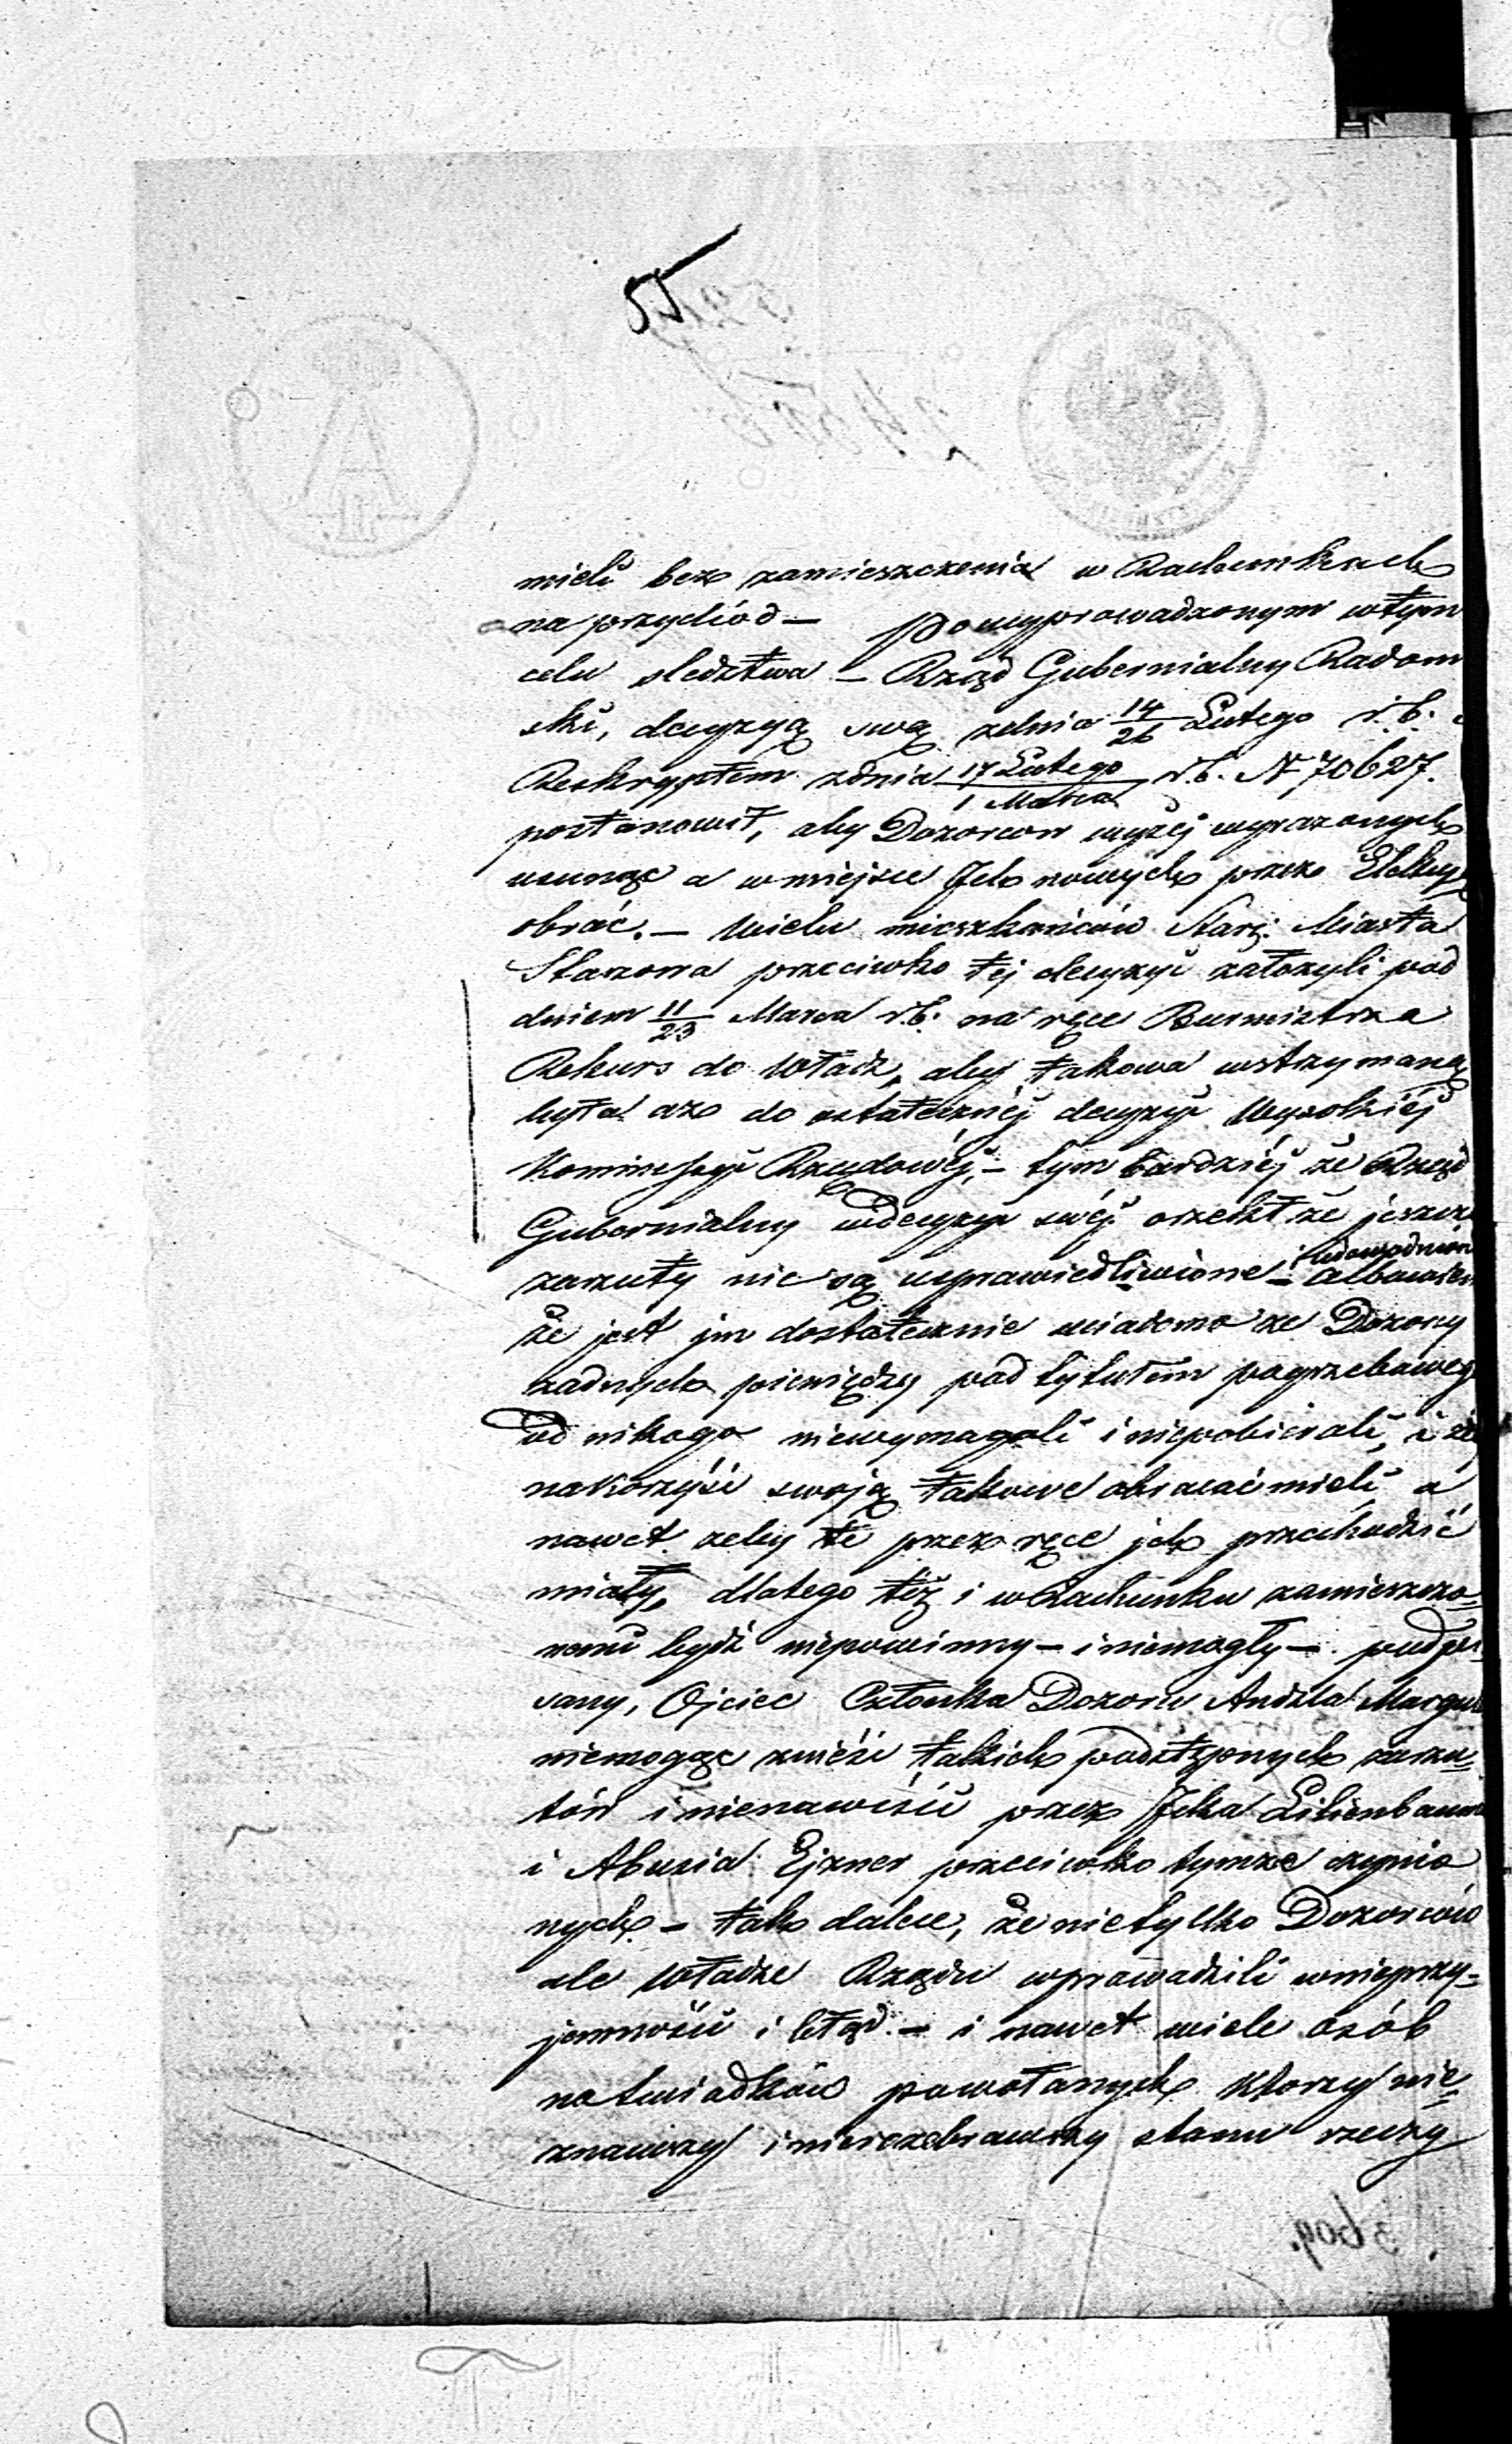 mieli bez zamieszczenia w Rachunkach
na przychód – Po wyprowadzonym w tym
celu sledztwa – Rząd Gubernialny Radom
ski, decyzyą swą zdnia 14/26 Lutego r.b.
Reskryptem zdnia 17 Lutego/1 Marca r.b. N 70627.
postanowił, aby Dozorcow wyżej wyrażonych
usunąc a w miejsce Ich nowych przez Elekcyą
obrać. – Wielu mieszkańców Starz: Miasta
Staszowa przeciwko tej decyzyi założyli pod
dniem 11/23 Marca r.b. na ręce Burmistrza
Rekurs do Władz, aby takowa wstrzymaną
była az do ostatecznéj decyzyi Wysokiéj
Kommissyi Rządowéj, – tym bardziéj że Rząd
Gubernialny w decyzyi swéj orzekł że jeszcze
zarzuty nie są usprawiedliwione – i udowodnion albowiem
że jest im dostatecznie wiadomo ze Dozory
zadnych pieniędzy pod tytułem pogrzebowego
od nikogo niewymagali i niepobierali, i że
na korzyść swoją takowe obracać mieli a
nawet zeby te przez ręce jch przechodzić
miały, dlatego też i w Rachunku zamieszczo=
nemi bydź niepowinny – i niemogły – podpi=
sany, Ojciec Członka Dozoru Andzla Margul
niemogąc znieść takich podstępnych zarzu=
tów i nienawiści przez Icka Lilienbaum
i Abusia Ejzner przeciwko tymze czynio
nych – tak dalece, że nietylko Dozorców
ale Władze Rządu wprowadzili w nieprzy=
jemności i błąd. – i nawet wiele osób
na świadków powołanych którzy nie=
znawszy i nierozebrawszy stanu rzeczy
3609.